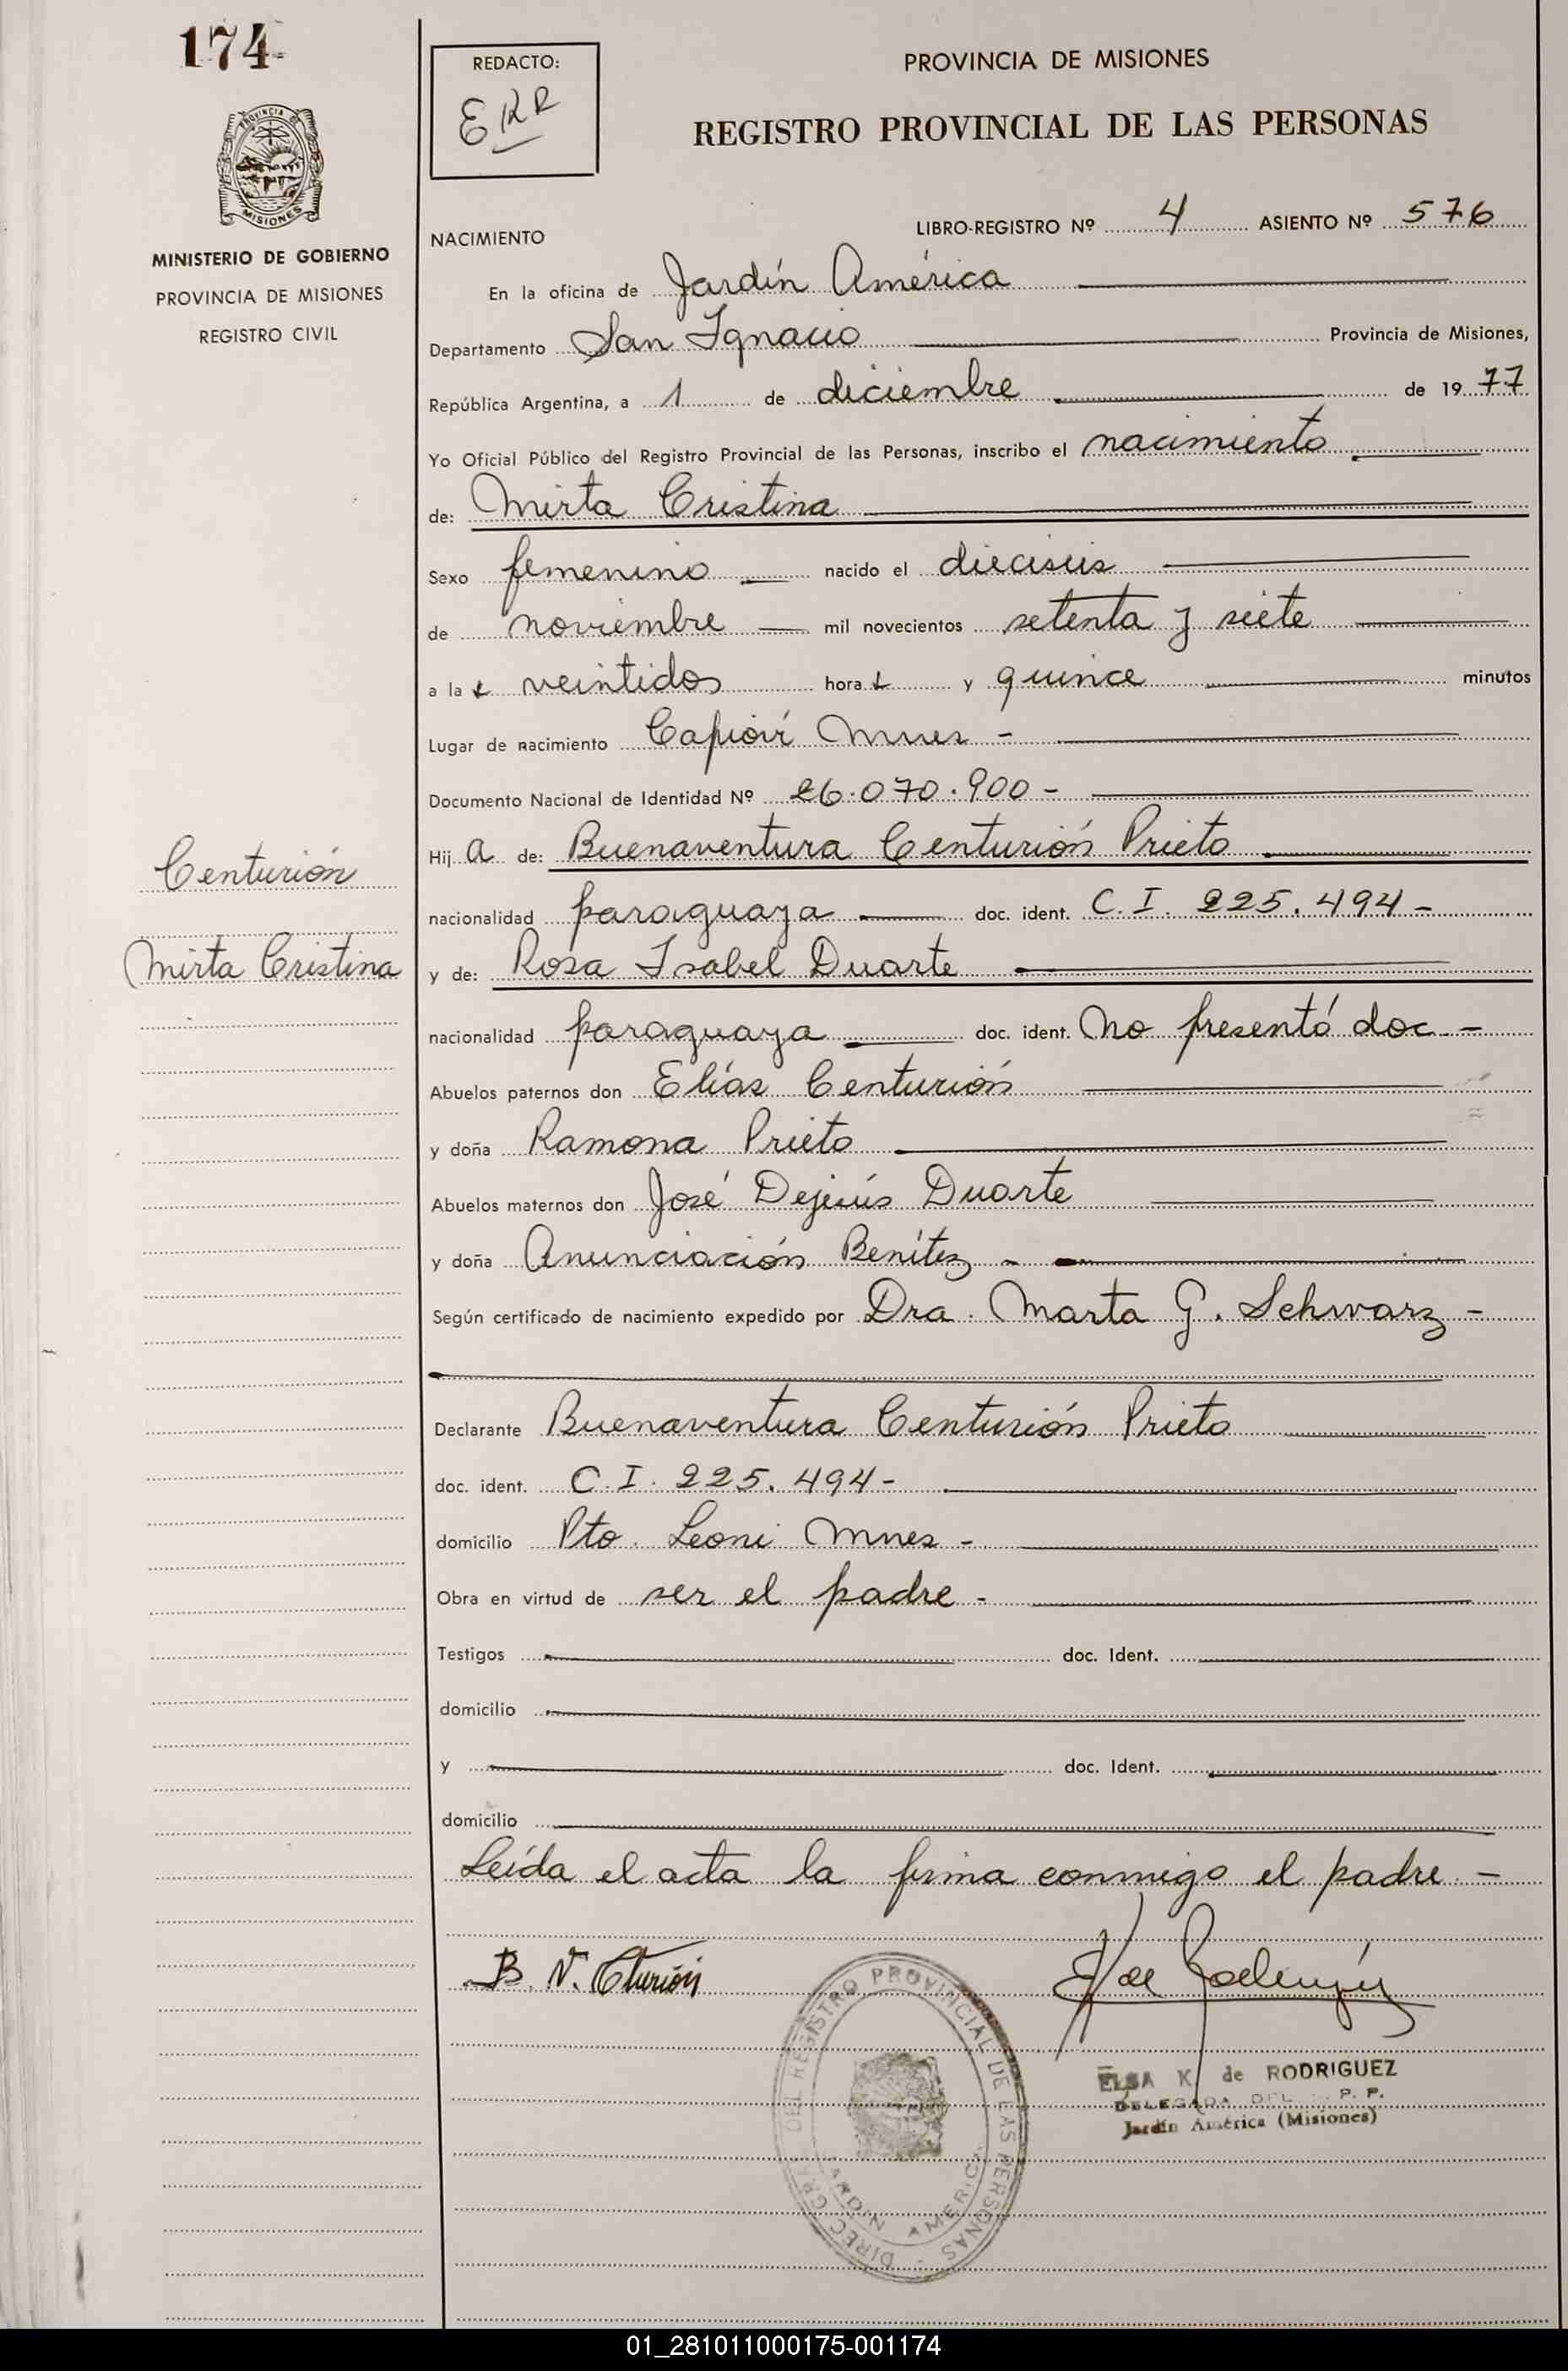 174
PROVINCIA DE
MISIONES
MINISTERIO DE GOBIERNO
PROVINCIA DE MISIONES
REGISTRO CIVIL
Centurión
Mirta Cristina
REDACTO:
EKR
PROVINCIA DE MISIONES
REGISTRO PROVINCIAL DE LAS PERSONAS
NACIMIENTO LIBRO-REGISTRO Nº 4 ASIENTO Nº 576
En la oficina de Jardín América
Departamento San Ignacio Provincia de Misiones,
República Argentina, a 1 de diciembre de 1977
Yo Oficial Público del Registro Provincial de las Personas, inscribo el nacimiento
de: Mirta Cristina
Sexo femenino nacido el dieciseis
de noviembre mil novecientos setenta y siete
a las veintidos horas y quince minutos
Lugar de nacimiento Capioví Mnes -
Documento Nacional de Identidad Nº 26.070.900-
Hija de: Buenaventura Centurión Prieto
nacionalidad paraguaya doc. ident. C.I. 225.494-
y de: Rosa Isabel Duarte
nacionalidad paraguaya doc. ident. No presentó doc -
Abuelos paternos don Elías Centurión
y doña Ramona Prieto
Abuelos maternos don José Dejesús Duarte
y doña Anunciación Benítez -
Según certificado de nacimiento expedido por Dra. Marta G. Schwarz -
Declarante Buenaventura Centurión Prieto
doc. ident. C.I. 225.494-
domicilio Pto. Leoni Mnes -
Obra en virtud de ser el padre -
Testigos doc. Ident.
domicilio
y doc. Ident.
domicilio
Leída el acta la firma conmigo el padre -
B. V. Cturión
DIREC. GRAL. DEL REGISTRO PROVINCIAL DE LAS PERSONAS
JARDIN AMERICA
ELSA K. de RODRIGUEZ
DELEGADA DEL P. P.
Jardín América (Misiones)
01_281011000175-001174